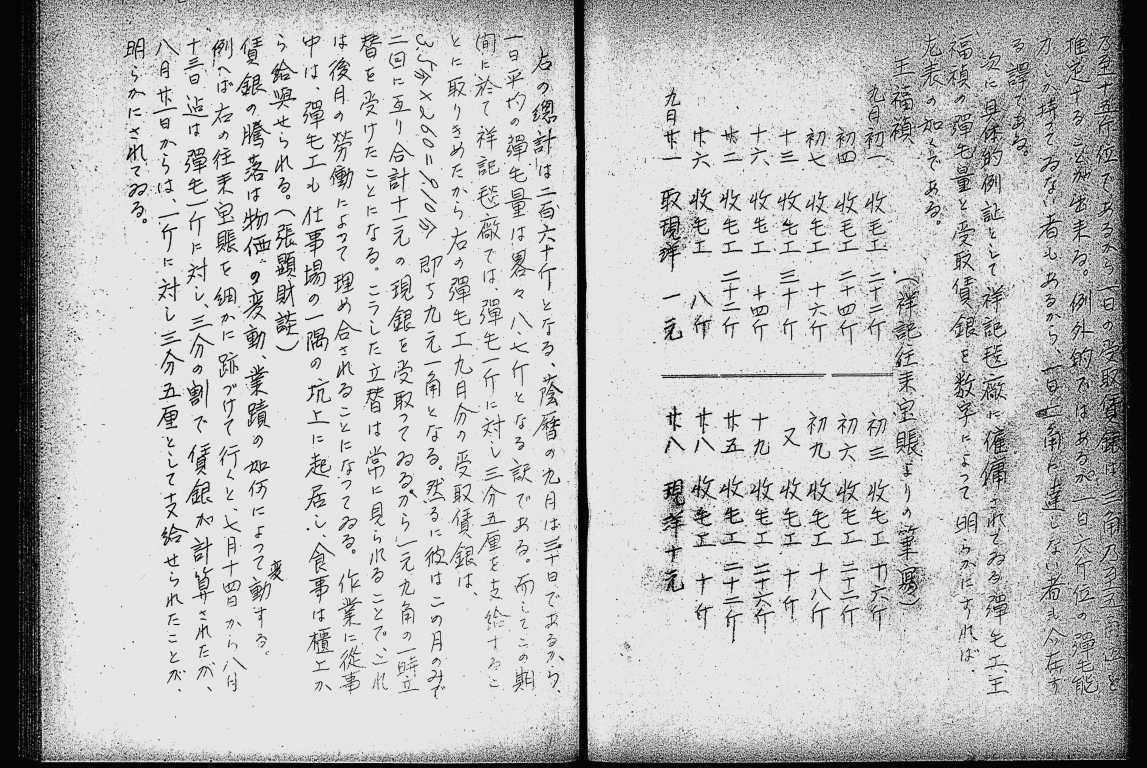 推定することが出来る。例外的ではあるが一日六斤位の彈毛能
力しか持てゐない者もあるから、一日二角に達しない者も介在す
る譯である。
次に具体的例証として祥記毯廠に傭されてゐる彈毛工王
福禎の彈毛量と受取賃銀を数字によって明らかにすれば、
左表の如くである。
王福禎　(祥記往来宝賬よりの筆寫)
九月初一　收毛工　二十二斤　初三　收毛工　十六斤
初四　收毛工　二十四斤　初六　收毛工　二十二斤
初七　收毛工　十六斤　初九　收毛工　十八斤
十三　收毛工　三十斤　又　收毛工　十斤
十六　收毛工　十四斤　十九　收毛工　二十六斤
廿二　收毛工　二十二斤　廿五　收毛工　二十二斤
廿六　收毛工　八斤　廿八　收毛工　十斤
九月廿一　取現洋　一元　廿八　現洋十元
右の總計は二百六十斤となる、蔭暦の九月は三十日であるから、
一日平均の彈毛量は畧々八七斤となる訳である。而してこの期
間に於て祥記毯廠では、彈毛一斤に対し三分五厘を支給するこ
とに取りきめたから右の彈毛工九月分の受取賃銀は、
3.5分×260=910分　即ち九元一角となる。然るに彼はこの月のみで
二回に亙り合計十一元の現銀を受取ってゐるから、一元九角の一時立
替を受けたことになる。こうした立替は常に見られることで、これ
は後月の勞働によって埋め合されることになってゐる。作業に從事
中は、彈毛工も仕事場の一隅の坑上に起居し、食事は櫃上か
ら給與せられる。(張顯財談)
賃銀の騰落は物価の変動、業蹟の如何によって変動する。
例へば右の往来宝賬を細かに跡づけて行くと、七月十四日から八月
十三日迠は彈毛一斤に対し、三分の割で賃銀が計算されたが、
八月廿一日からは、一斤に対し三分五厘として支給せられたことが、
明らかにされてゐる。